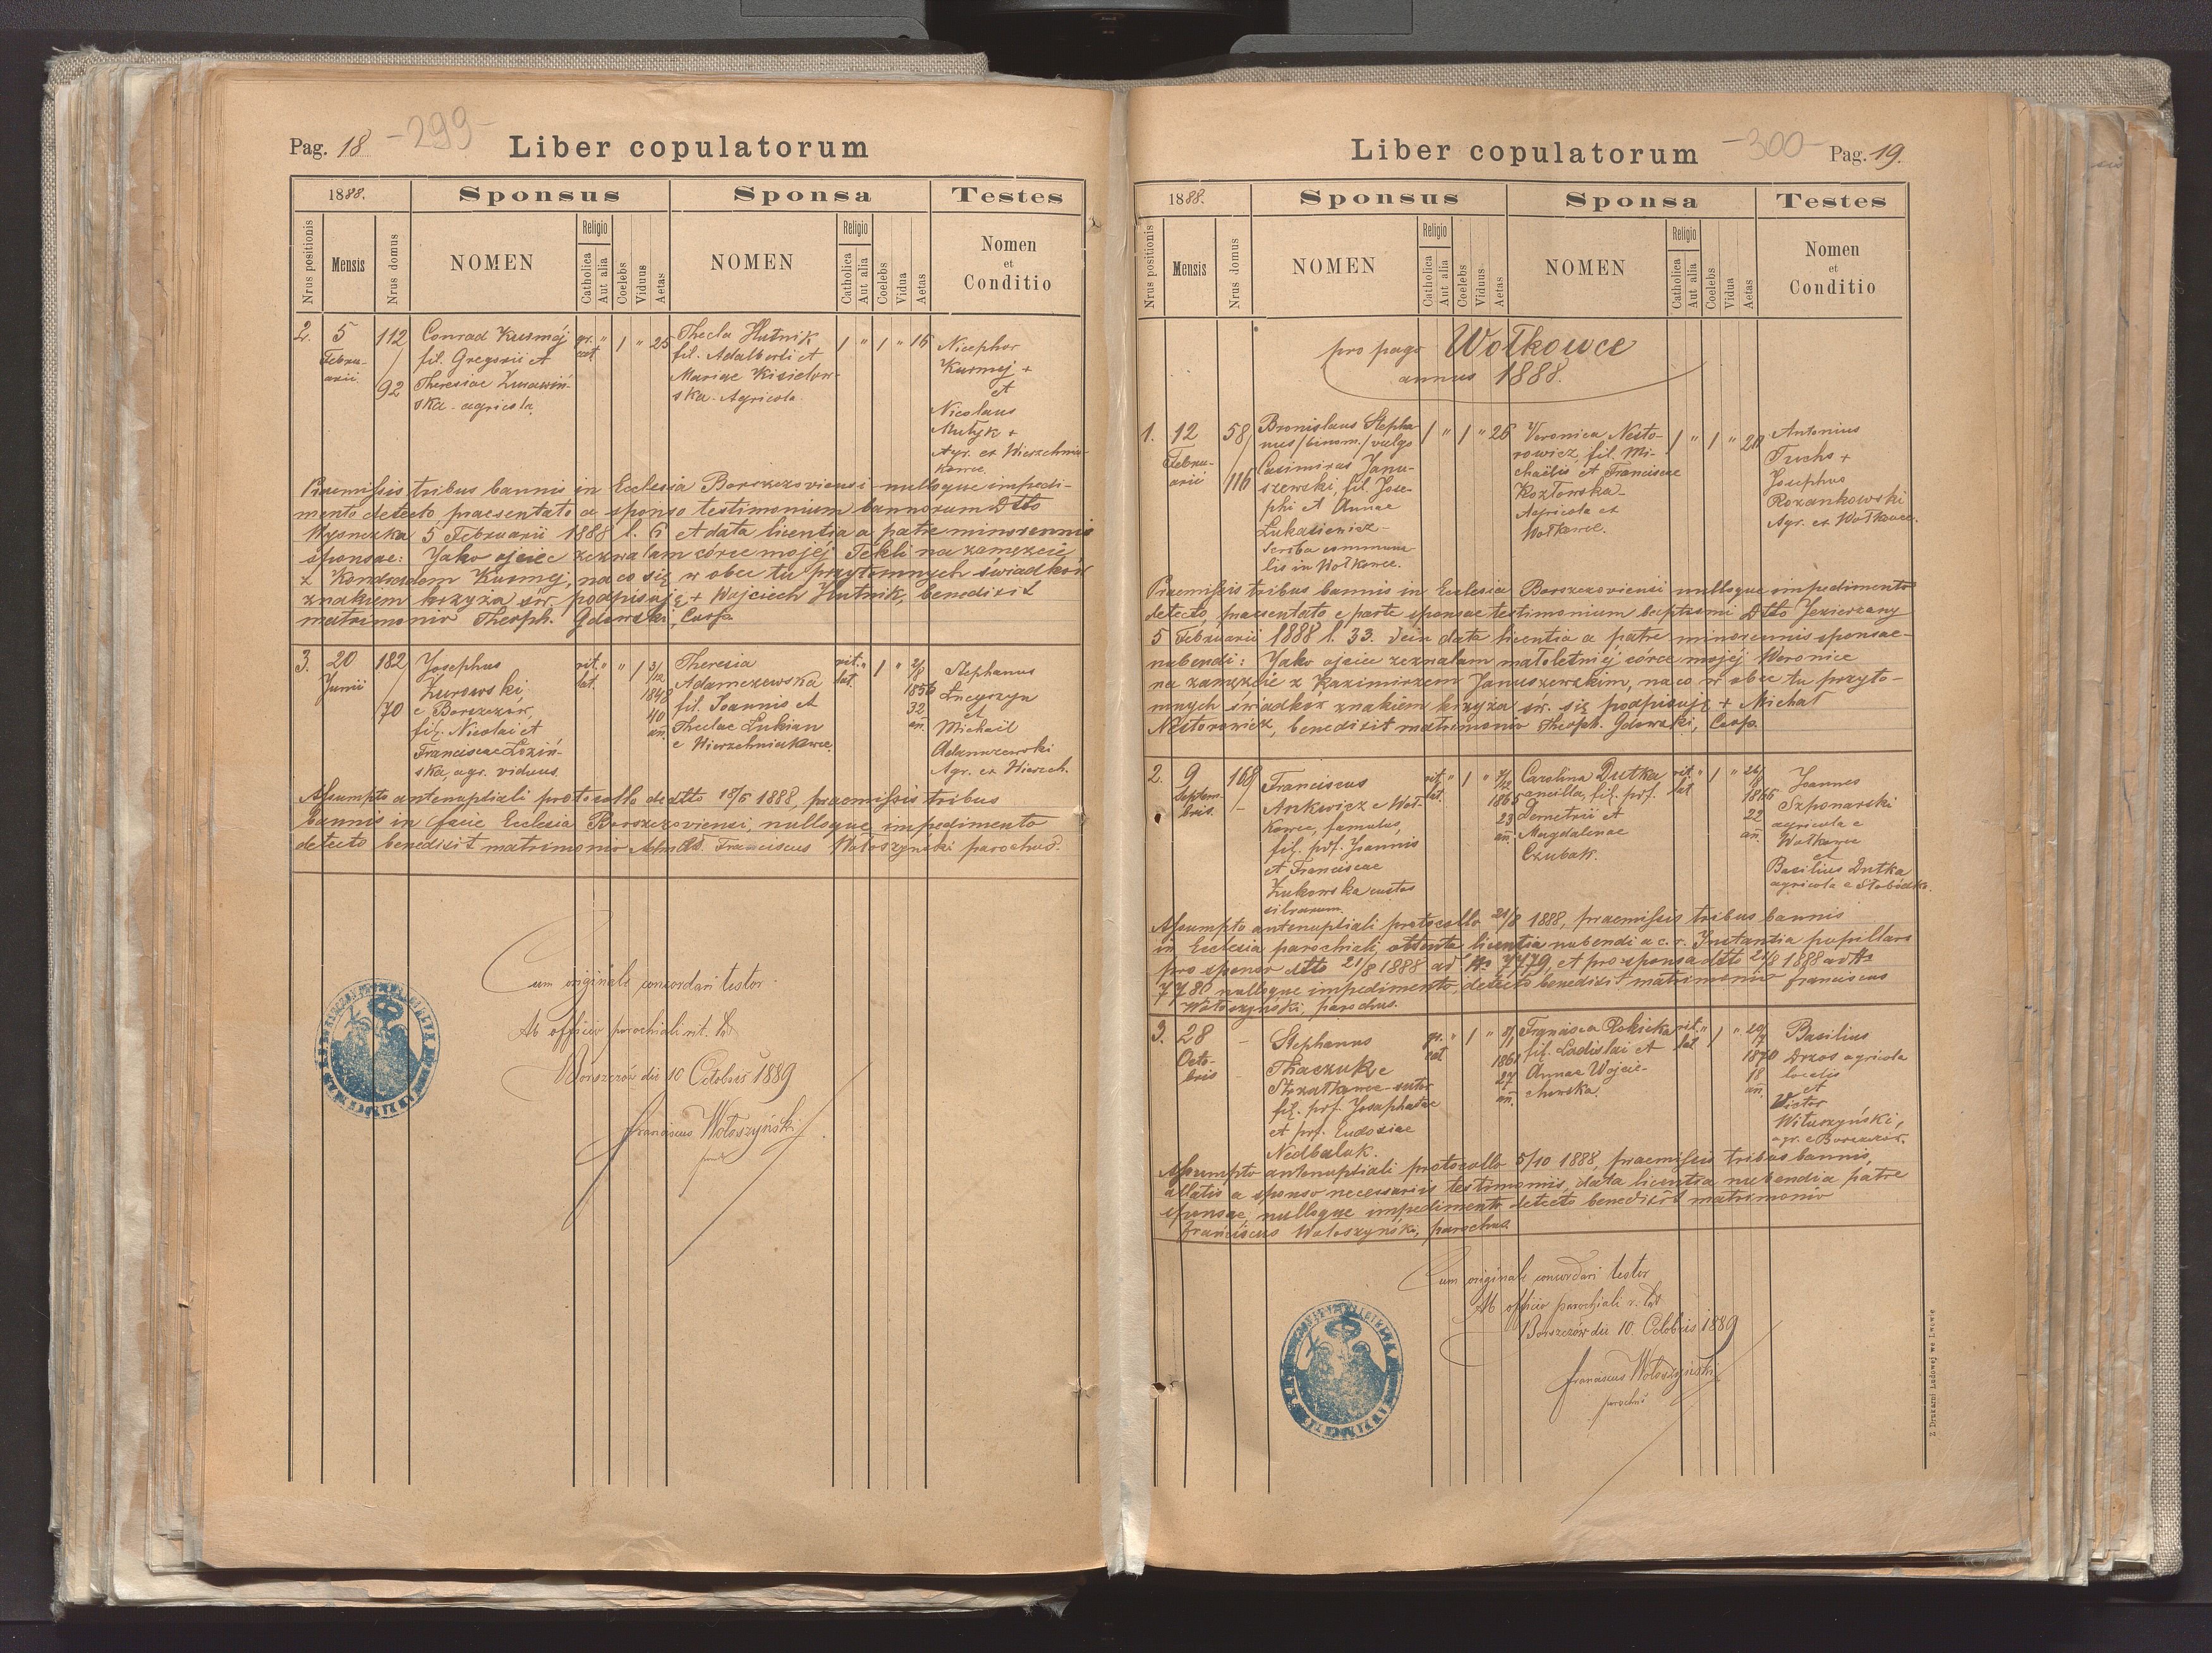 Pag. 18 -299- Liber copulatorum
1888. Sponsus Sponsa Testes
Nrus positionis Mensis Nrus domus NOMEN Religio Catholica Aut alia Coelebs Viduus Aetas NOMEN Religio Catholica Aut alia Coelebs Vidua Aetas Nomen et Conditio
2. 5 Februarii 112/92
Conrad Kusmej
fil. Gregorii et
Theresiae Żurawiń-
ska - agricola
gr. cat. " 1 " 25
Thecla Hutnik
fil. Adalberti et
Mariae Kisielow-
ska. Agricola
1 " 1 " 16
Nicephor
Kusmej +
et
Nicolaus
Mutyk +
Agr. ex Wierzchnia-
kowce.
Praemissis tribus bannis in Ecclesia Borszczoviensi nulloque impedi-
mento detecto, praesentato a sponso testimonium bannorum Dtto
Wysuczka 5 Februarii 1888 l. 6 et data licentia a patre minorennis
sponsae: Jako ojciec zezwalam córce mojej Tekli na zamęzcie
z Konradem Kusmej, na co się w obec tu przytomnych świadków
znakiem krzyża św. podpisuję + Wojciech Hutnik, benedixit
matrimonio Theoph. Gdowski, Coop.
3. 20 Junii 182/70
Josephus
Żurowski
e Borszczow,
fil. Nicolai et
Franciscae Łoziń-
ska, agr. viduus.
rit. lat. " " 1 3/12 1848 40 an.
Theresia
Adamczewska
fil. Joannis et
Theclae Lukian
e Wierzchniakowce.
rit. lat. " 1 " 2/8 1856 32 an.
Stephanus
et
Michail
Adamczewski
Agr. ex Wierzch.
Assumpto antenuptiali protocollo de dtto 18/6 1888, praemissis tribus
bannis in facie Ecclesia Borszczoviensi, nulloque impedimento
detecto benedixit matrimonio Franciscus Wołoszyński parochus.
Cum originale concordari testor.
Ab officio parochiali rit. lat
Borszczów die 10 Octobris 1889
Franciscus Wołoszyński
Liber copulatorum -300- Pag. 19.
1888. Sponsus Sponsa Testes
Nrus positionis Mensis Nrus domus NOMEN Religio Catholica Aut alia Coelebs Viduus Aetas NOMEN Religio Catholica Aut alia Coelebs Vidua Aetas Nomen et Conditio
pro pago Wołkowce
annus 1888.
1. 12 Februarii 58/116
Bronislaus Stepha-
nus /binom./ vulgo
Casimirus Janu-
szewski, fil. Jose-
phi et Annae
Łukasiewicz -
Scriba commun-
lis in Wołkowce.
1 " 1 " 26
Veronica Nesto-
rowicz, fil. Mi-
chaëlis et Franciscae
Kozłowska -
Agricola ex
Wołkowce.
1 " 1 " 20
Antonius
Fuchs +
Josephus
Rozankowski
Agr. ex Wołkowce.
Praemissis tribus bannis in Ecclesia Borszczoviensi nulloque impedimento
detecto, praesentato e parte sponsae testimonium baptismi Dtto Jezierzany
5 Februarii 1888 l. 33. dein data licentia a patre minorennis sponsae
nubendi: Jako ojciec zezwalam małoletniéj córce mojéj Weronice
na zamęźcie z Kazimirzem Januszewskim, na co w obec tu przyto-
mnych świadków znakiem krzyża św. się podpisuję + Michał
Nestorowicz, benedixit matrimonio Theoph. Gdowski, Coop.
2. 9 Septembris 168
Franciscus
Ankiewicz e Woł-
kowce, famulus,
fil. pdf. Joannis
et Franciscae
Żukowska custos
silvarum.
rit. lat. " 1 " 7/12 1865 23 an.
Carolina Dutka
ancilla, fil. pdf.
Demetrii et
Magdalenae
Czubak.
rit. lat " 1 " 26/8 1866 22 an.
Joannes
Szponarski
agricola e
Wołkowce
et
Basilius Dutka
agricola e Słobódka.
Assumpto antenuptiali protocollo 21/8 1888, praemissis tribus bannis
in Ecclesia parochiali, obtenta licentia nubendi a c. r. Instantia pupillari
pro sponso dtto 21/8 1888 ad No 7479, et pro sponsa dtto 21/8 1888 ad No
7480 nulloque impedimento, detecto benedixit matrimonio Franciscus
Wołoszyński, parochus.
3. 28 Octobris -
Stephanus
Tkaczuk e
sutor
fil. pdf. Josaphatae
et pdf. Eudoxiae
Nedbaluk.
gr. cat " 1 " 8/1 1861 27 an.
Francisca Rokicka
fil. Ladislai et
Annae Wojcie-
chowska.
rit. lat " 1 " 29/7 1870 18 an.
Basilius
Drzos agricola
localis
et
Victor
Wiluszyński,
agr. e Borszczów.
Assumpto antenuptiali protocollo 5/10 1888, praemissis tribus bannis,
allatis a sponso necessariis testimoniis, data licentia nubendi a patre
sponsae, nulloque impedimento detecto benedixit matrimonio
Franciscus Wołoszyński, parochus
Cum originale concordari testor
Ab officio parochiali r. lat
Borszczów die 10. Octobris 1889
Franciscus Wołoszyński
parochus
Z Drukarni Ludowej we Lwowie